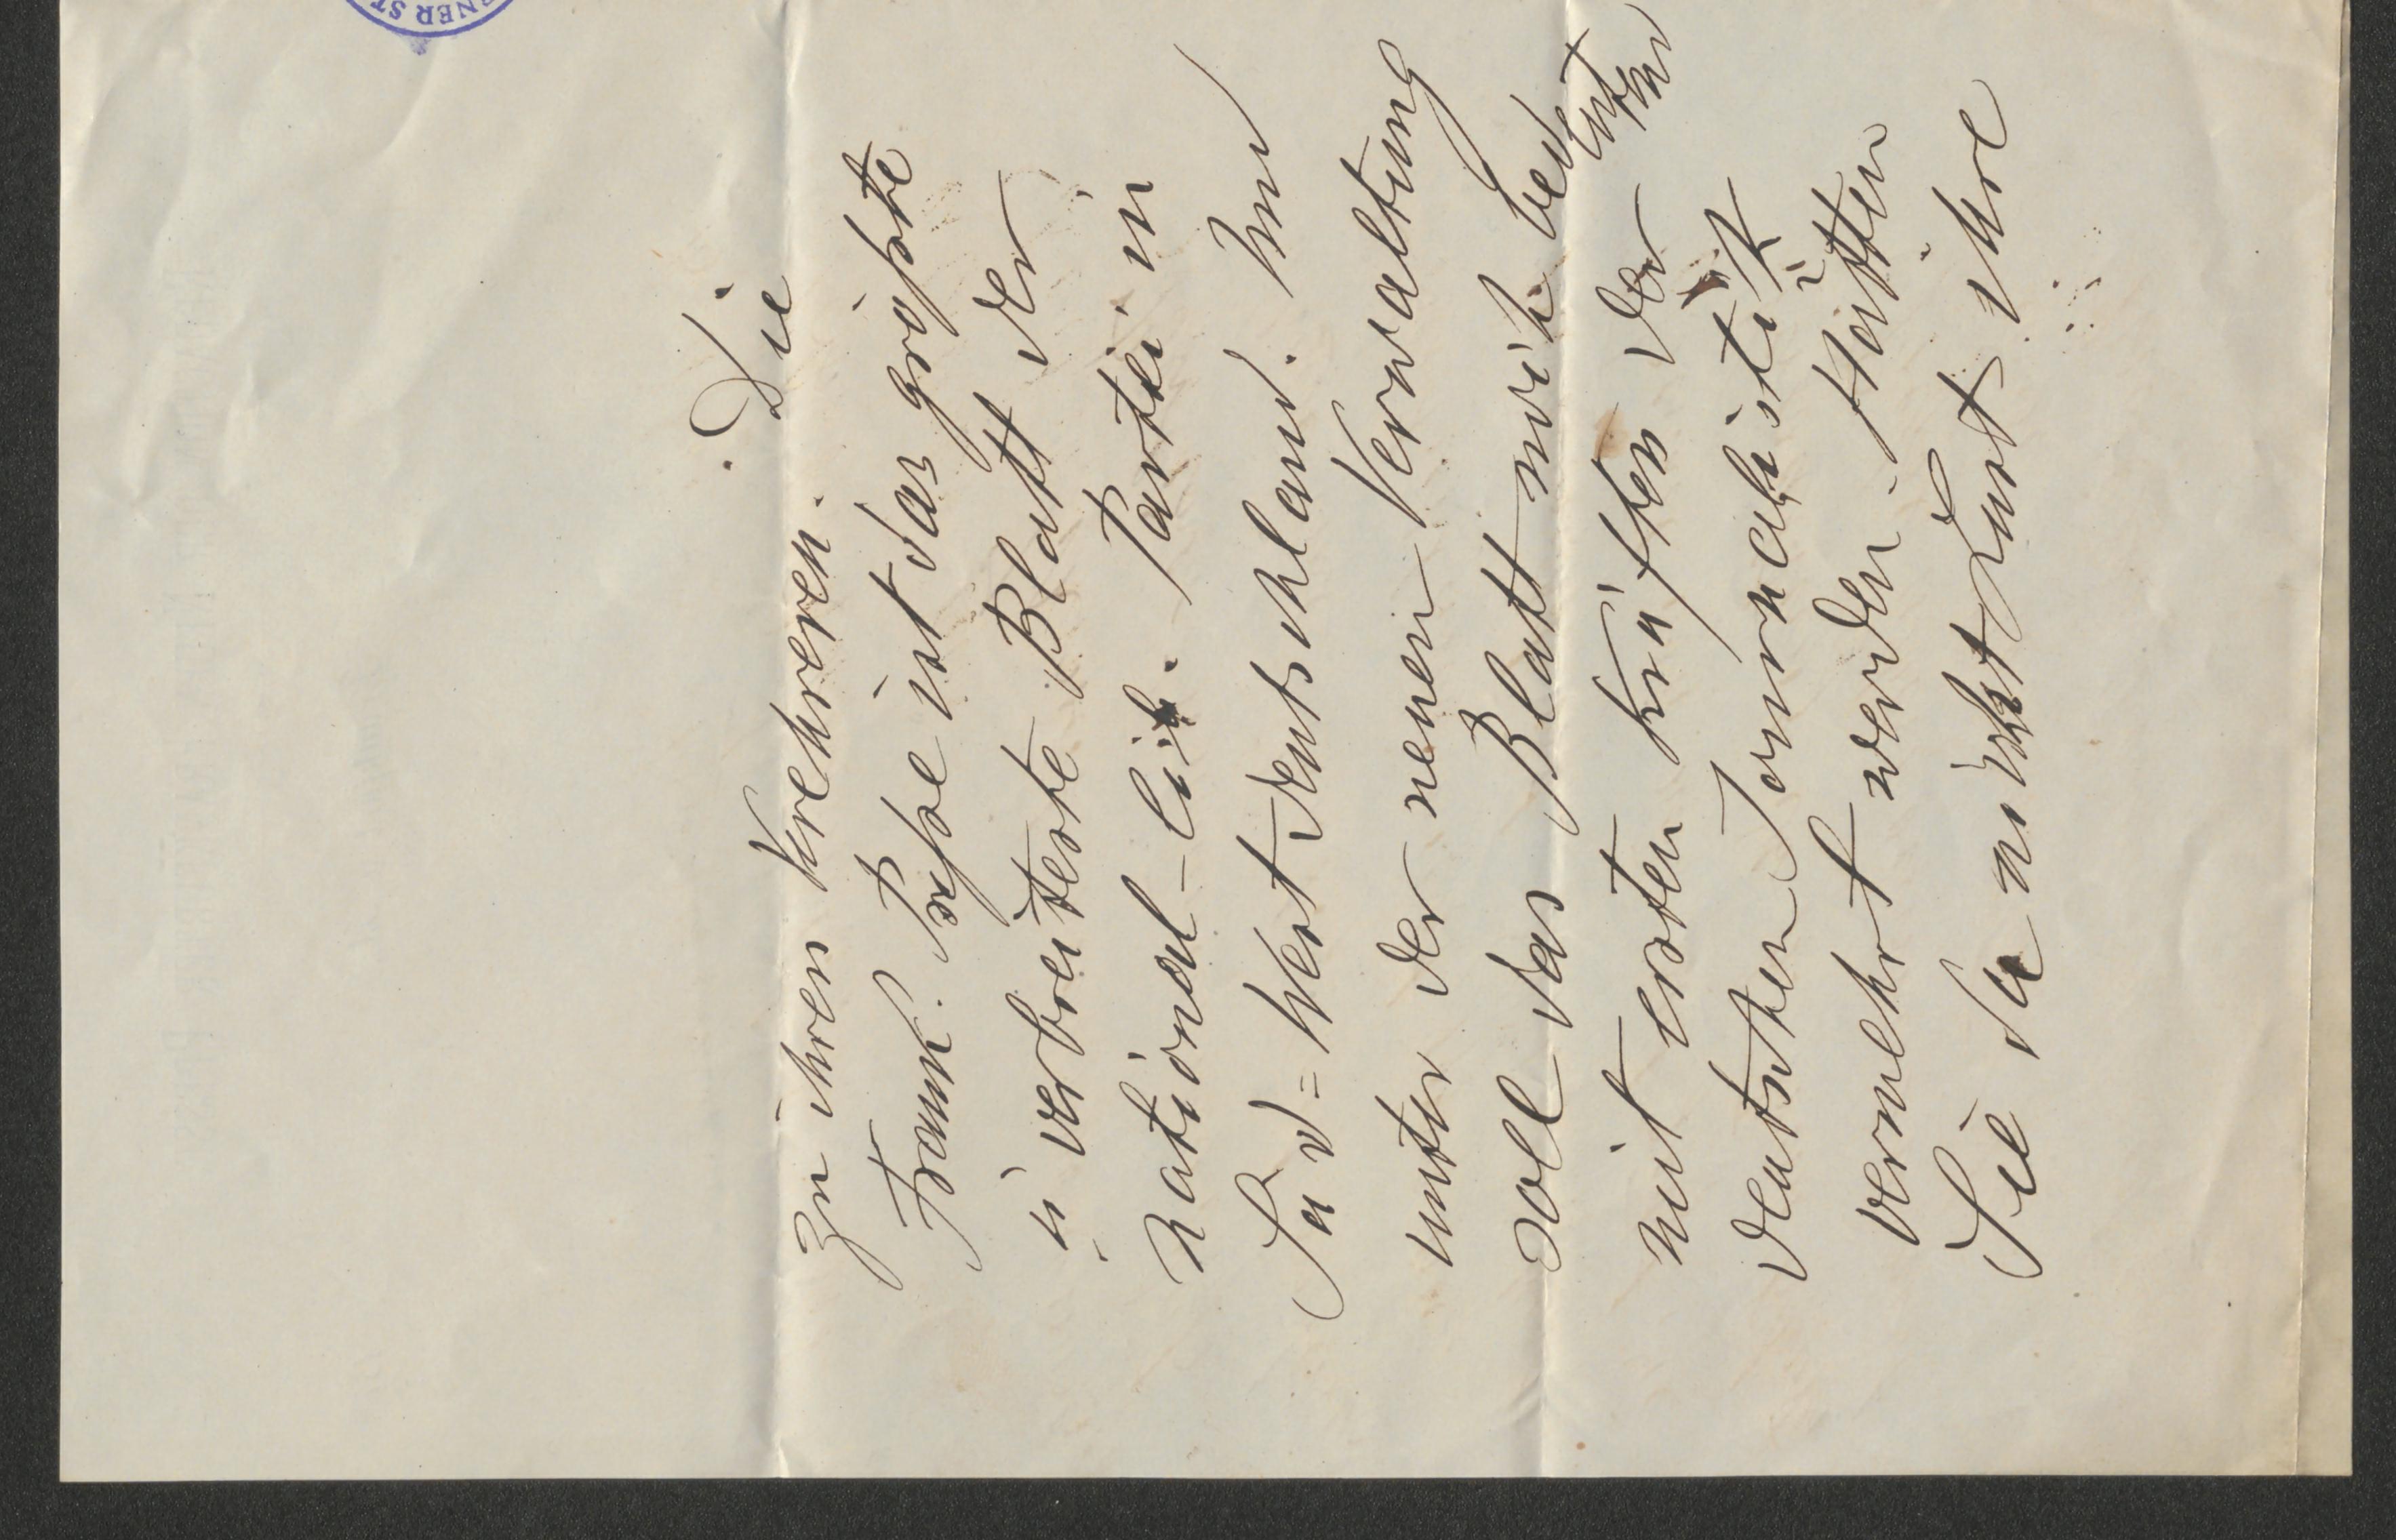 zu ihren Verehrern. Die
Frank. Presse ist das größte
u verbreiteste Blatt der
national-lib. Partei in
Süd=West Deutschland. Und
unter der neuen Verwaltung
soll das Blatt noch bedeutend
mit ersten Kräften der
deutschen Journalistik
vermehrt werden. Hätten
Sie da nicht Lust ihre
RNER ST